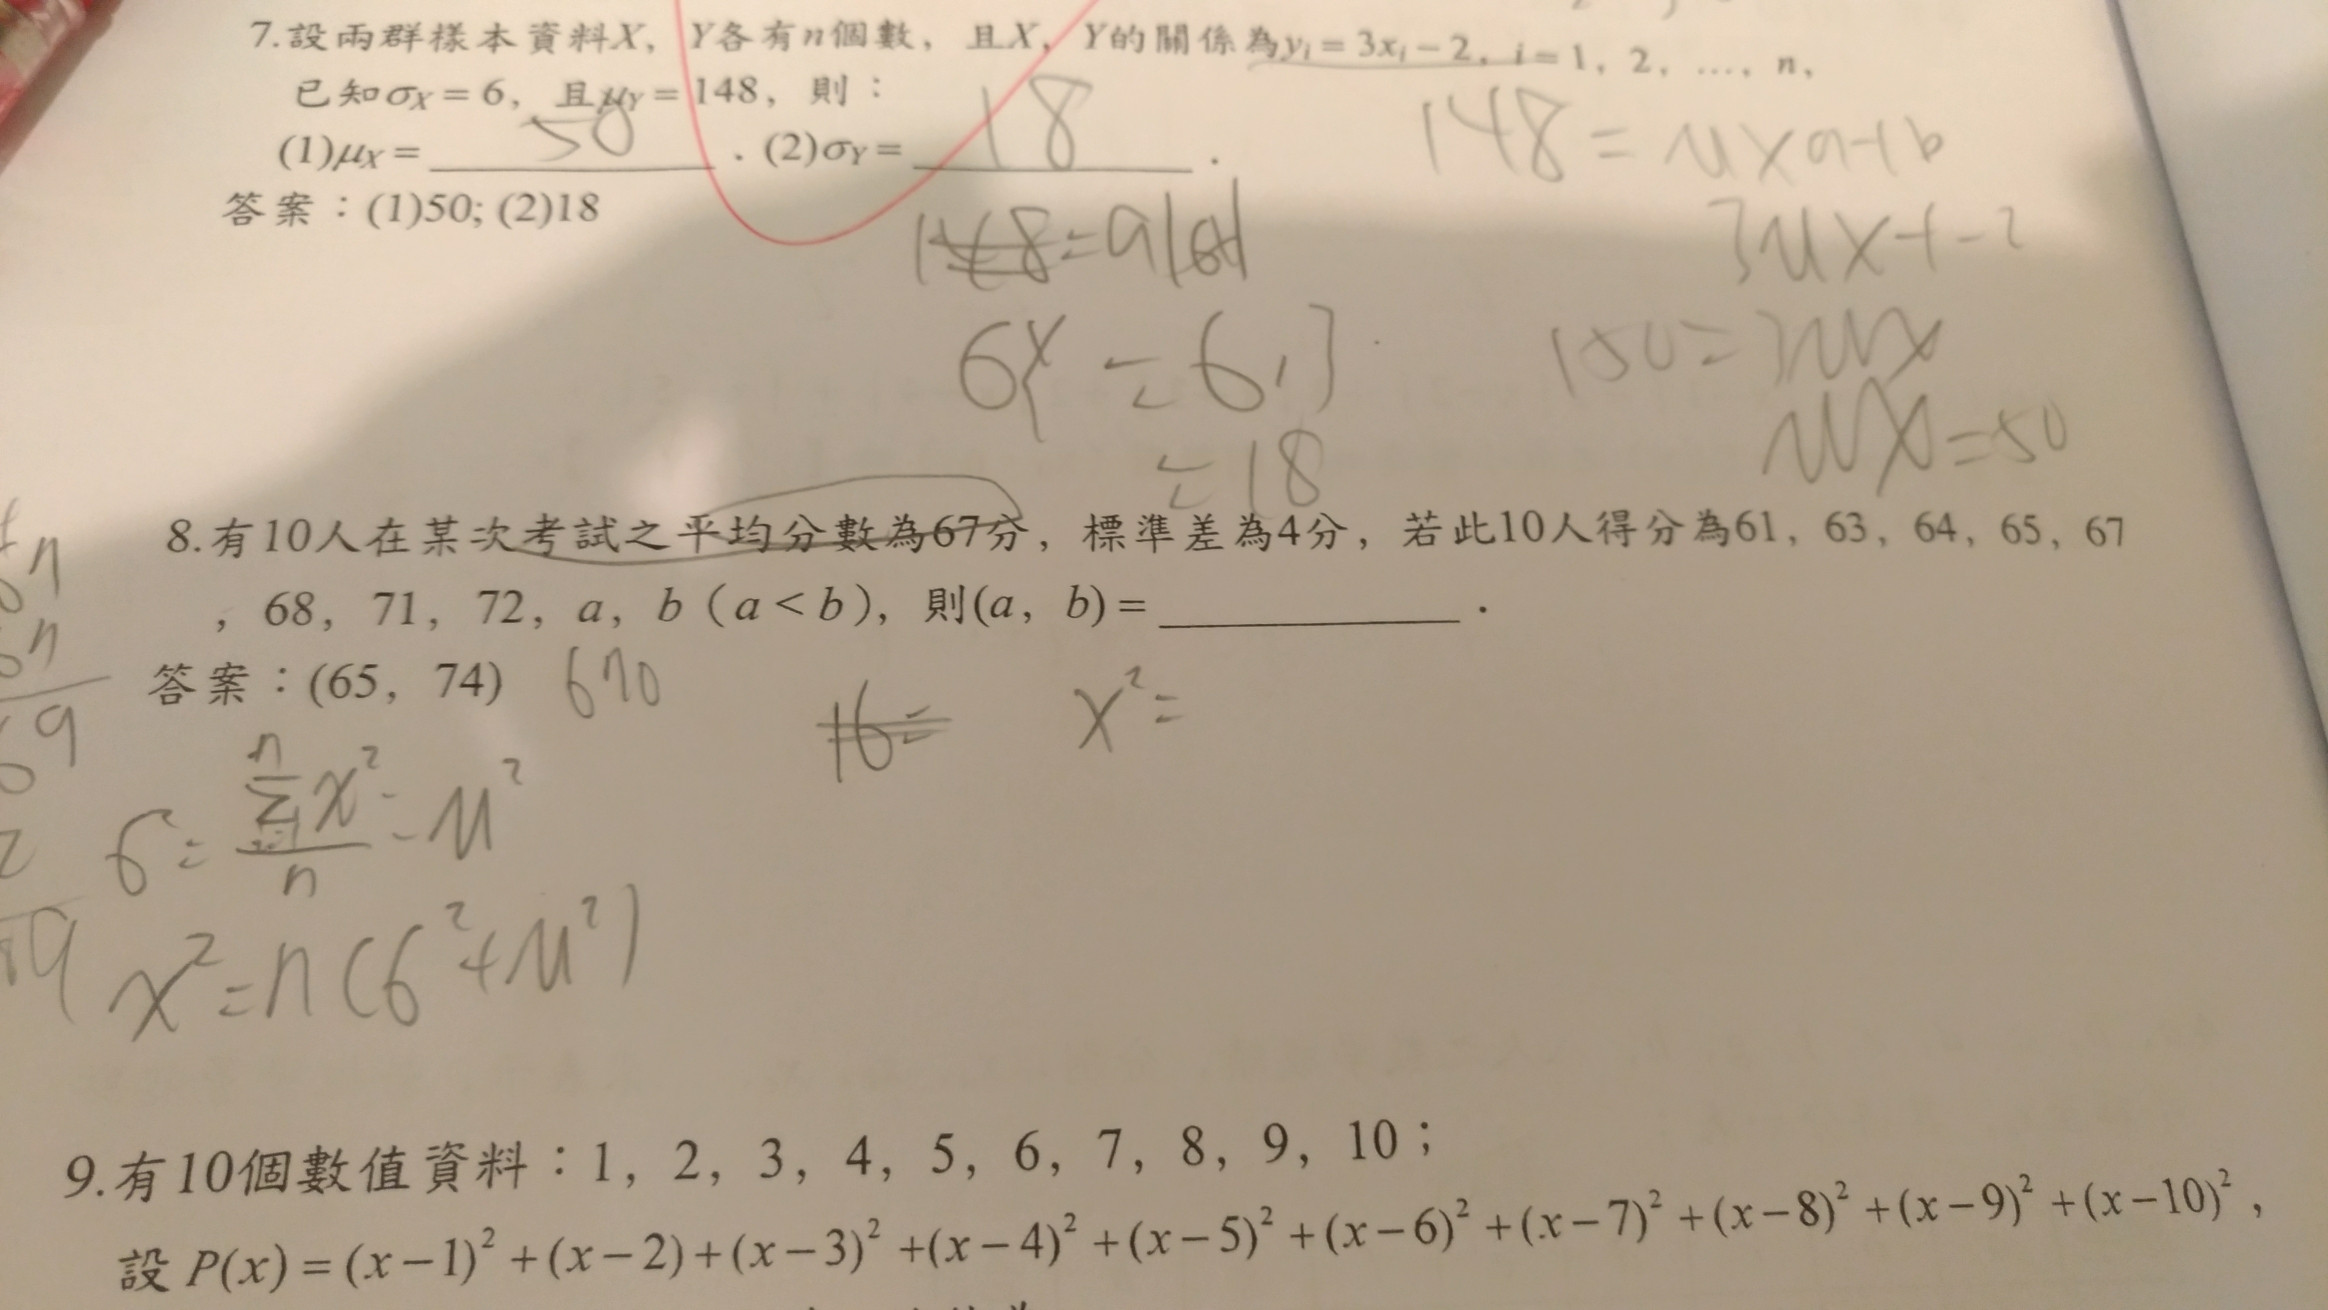 7.設兩群樣本資料X，Y各有n個數，且X，Y的關係為yᵢ＝3xᵢ－2，i＝1，2，…，n，
已知σX＝6，且μY＝148，則：
(1)μX＝ 50 ．(2)σY＝ 18 ．
答案：(1)50; (2)18
148＝μxa+b
3μx+-2
150＝3μx
μx＝50
＝6·3
＝18
8.有10人在某次考試之平均分數為67分，標準差為4分，若此10人得分為61，63，64，65，67
，68，71，72，a，b（a＜b），則(a，b)＝ ．
答案：(65，74) 670
16=
x²=
σ=
n
Σ x²
n
-μ²
x²=n(σ²+μ²)
9.有10個數值資料：1，2，3，4，5，6，7，8，9，10；
設 P(x)＝(x－1)²＋(x－2)＋(x－3)²＋(x－4)²＋(x－5)²＋(x－6)²＋(x－7)²＋(x－8)²＋(x－9)²＋(x－10)²，